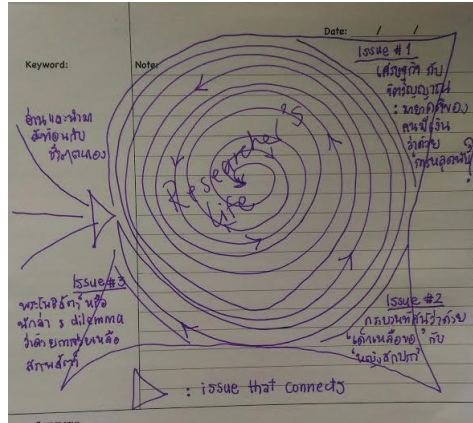 Date: / /
Keyword:
Note:
Issue #1
เศรษฐกิจ กับ
จิตวิญญาณ
: มายาคติของ
คนมีเงิน
ว่าด้วย
การหลุดพ้น?
อ่านและนำมา
สะท้อนกับ
ชีวิตตนเอง
Researcher's
life
Issue #3
พระโพธิสัตว์ หรือ
นักล่า : dilemma
ว่าด้วยการช่วยเหลือ
สรรพสัตว์
Issue #2
กระบวนทัศน์ว่าด้วย
กับ
: issue that connects